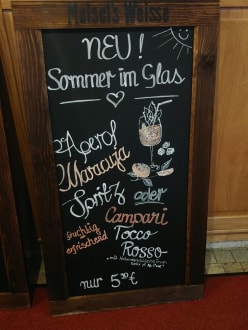 Maisel's Weisse
NEU!
Sommer im Glas
Aperol
Maracuja
Spritz oder
fruchtig
erfrischend
Campari
Tocco
Rosso
nur 5,90€